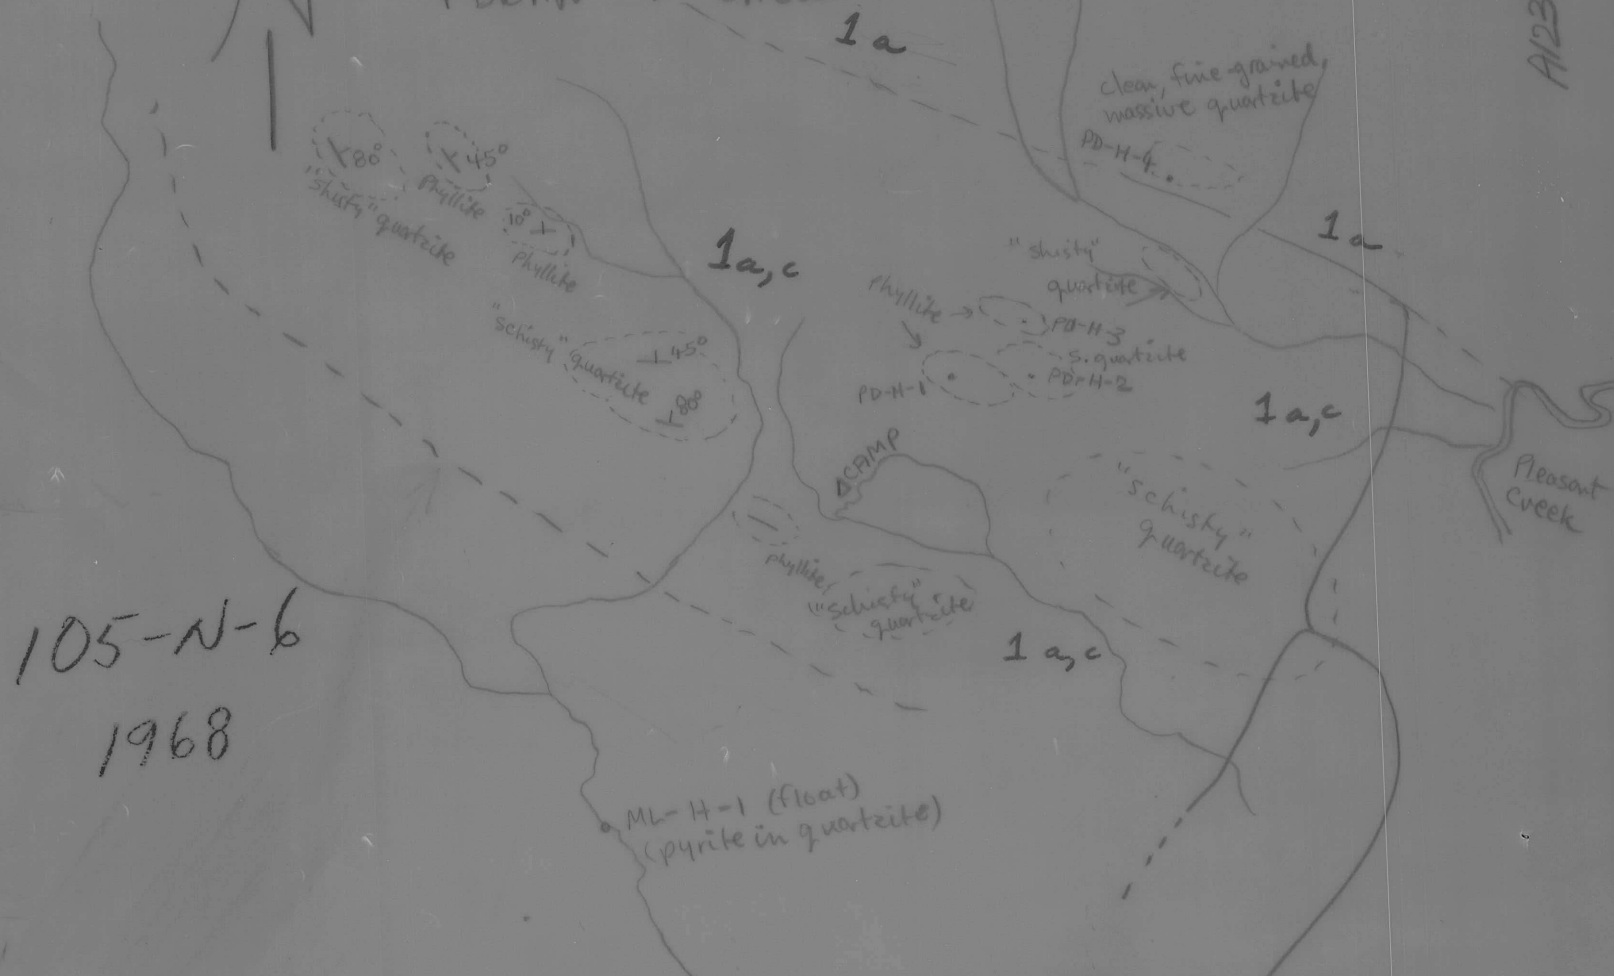 1a
A123
clean, fine-grained,
massive quartzite
PD-H-4
80°
"shisty" quartzite
45°
Phyllite
10°
Phyllite
1a,c
1a
"shisty"
quartzite
Phyllite
PD-H-3
S. quartzite
PD-H-2
PD-H-1
"schisty" quartzite
45°
80°
1a,c
CAMP
"schisty"
quartzite
Pleasant
Creek
phyllite
"schisty"
quartzite
1a,c
105-N-6
1968
ML-H-1 (float)
(pyrite in quartzite)